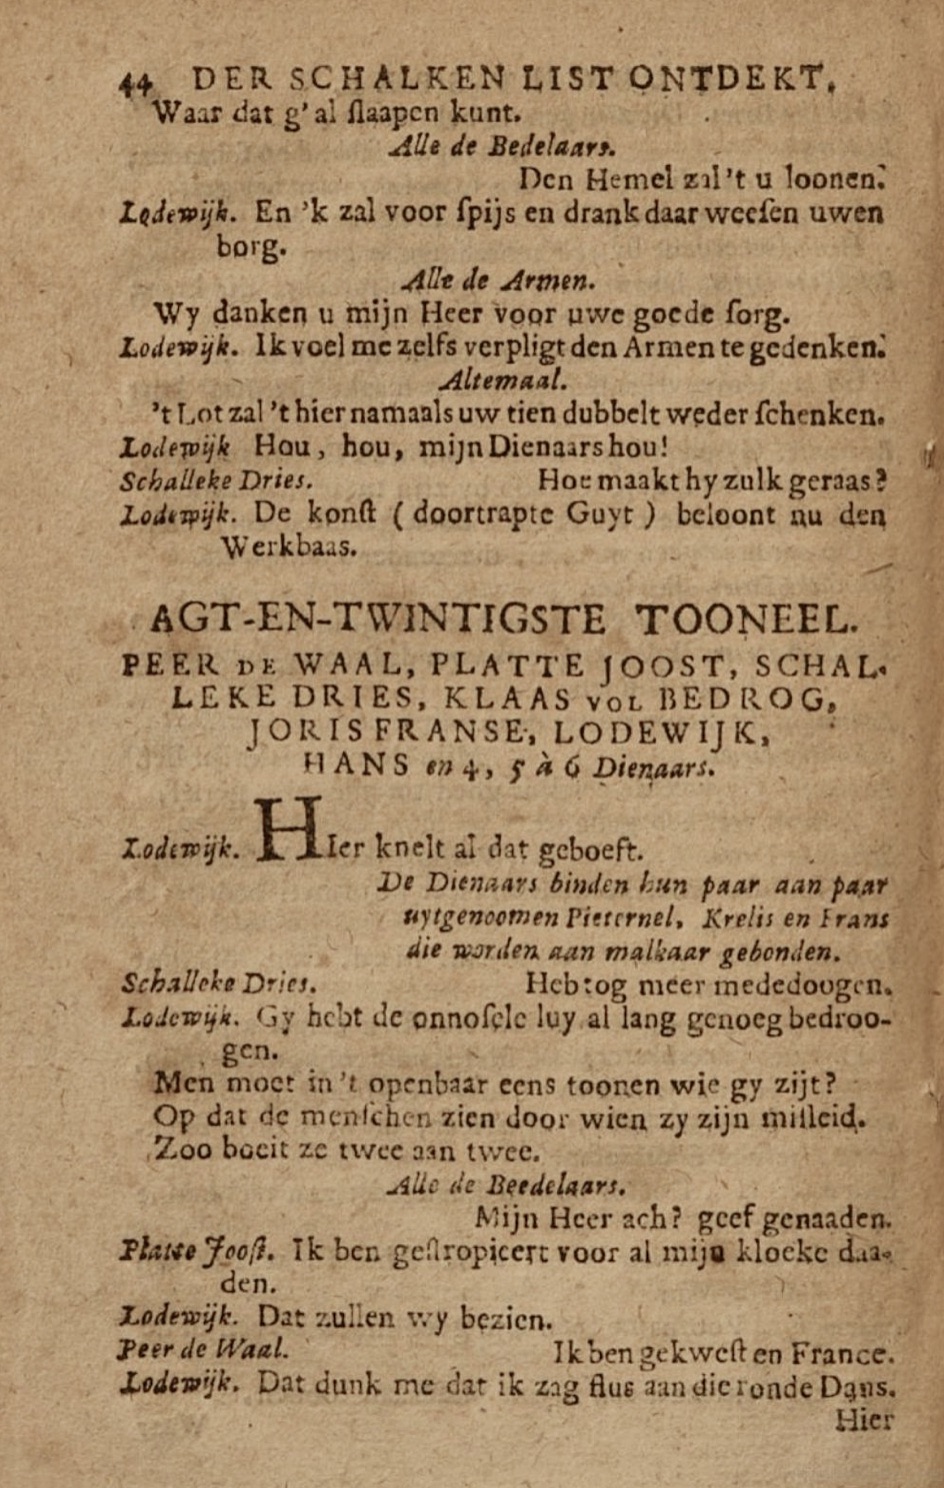 44 DER SCHALKEN LIST ONTDEKT,
Waar dat g'al ſlaapen kunt.
Alle de Bedelaars.
Den Hemel zal 't u loonen.
Lodewijk. En 'k zal voor ſpijs en drank daar weeſen uwen
borg.
Alle de Armen.
Wy danken u mijn Heer voor uwe goede ſorg.
Lodewijk. Ik voel me zelfs verpligt den Armen te gedenken.
Altemaal.
't Lot zal 't hier namaals uw tien dubbelt weder ſchenken.
Lodewijk Hou, hou, mijn Dienaars hou!
Schalleke Dries. Hoe maakt hy zulk geraas?
Lodewijk. De konſt ( doortrapte Guyt ) beloont nu den
Werkbaas.
AGT-EN-TWINTIGSTE TOONEEL.
PEER DE WAAL, PLATTE JOOST, SCHAL-
LEKE DRIES, KLAAS VOL BEDROG,
JORIS FRANSE, LODEWIJK,
HANS en 4, 5 à 6 Dienaars.
Lodewijk. HIer knelt al dat geboeft.
De Dienaars binden hun paar aan paar
uytgenoomen Pieternel, Krelis en Frans
die worden aan malkaar gebonden.
Schalleke Dries. Heb tog meer mededoogen.
Lodewijk. Gy hebt de onnoſele luy al lang genoeg bedroo-
gen.
Men moet in 't openbaar eens toonen wie gy zijt?
Op dat de menſchen zien door wien zy zijn miſleid.
Zoo boeit ze twee aan twee.
Alle de Beedelaars.
Mijn Heer ach? geef genaaden.
Platte Jooſt. Ik ben geſtropieert voor al mijn kloeke daa-
den.
Lodewijk. Dat zullen wy bezien.
Peer de Waal. Ik ben gekweſt en France.
Lodewijk. Dat dunk me dat ik zag flus aan die ronde Dans.
Hier